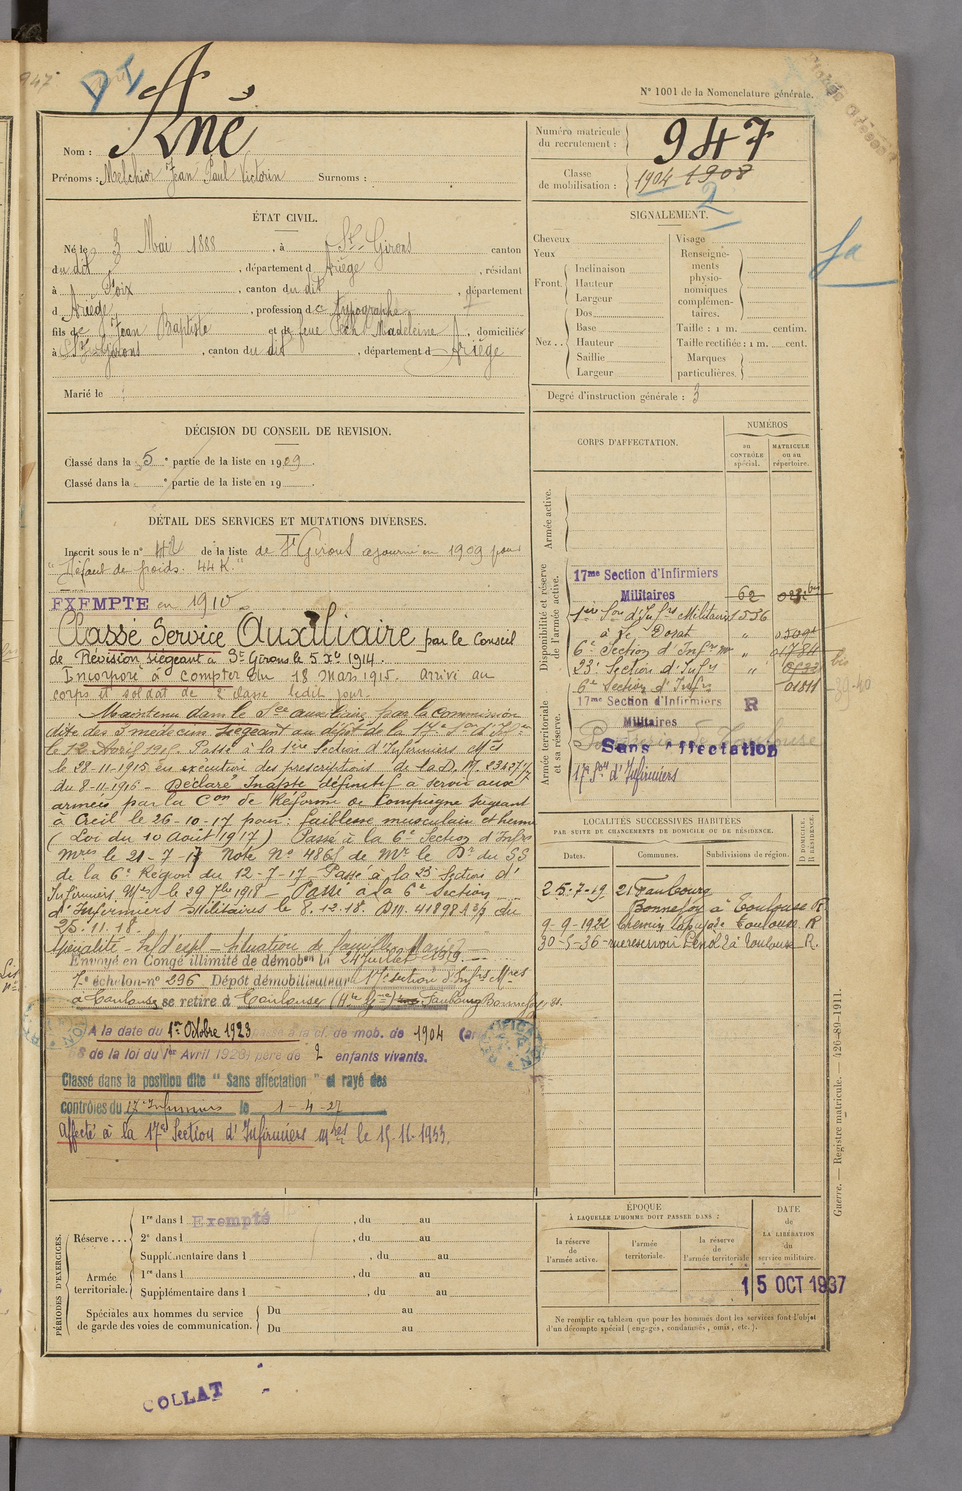 947
N° 1001 de la Nomenclature générale.
Nom : Ané
Prénoms : Melchior Jean Paul Victorin Surnoms :
Numéro matricule du recrutement : 947
Classe de mobilisation : 1904 1908
2
ÉTAT CIVIL.
Né le 3 Mai 1888, à St Girons canton
du dit, département d Ariège, résidant
à Foix, canton du dit, département
d Ariège, profession de typographe
fils de Jean Baptiste et de feue Pech Madeleine, domiciliés
à St Girons, canton du dit, département d Ariège
Marié le
SIGNALEMENT.
Cheveux
Yeux
Front. Inclinaison
Hauteur
Largeur
Nez .. Dos
Base
Hauteur
Saillie
Largeur
Visage
Renseignements physionomiques complémentaires.
Taille : 1 m. centim.
Taille rectifiée : 1 m. cent.
Marques particulières.
Degré d'instruction générale : 3
DÉCISION DU CONSEIL DE REVISION.
Classé dans la 5e partie de la liste en 1909.
Classé dans la e partie de la liste en 19
DÉTAIL DES SERVICES ET MUTATIONS DIVERSES.
Inscrit sous le n° 42 de la liste de St Girons ajourné en 1909 pour
"Défaut de poids. 44 K."
EXEMPTÉ en 1910
Classé Service Auxiliaire par le Conseil
de Révision siégeant à St Girons le 5 Xbre 1914.
Incorporé à compter du 18 Mars 1915. Arrivé au
corps et soldat de 2e classe ledit jour.
Maintenu dans le Sce auxiliaire par la commission
dite des 3 médecins siégeant au dépôt de la 17e Son d'Infers
le 12 Avril 1915. Passé à la 1ère Section d'Infirmiers Mres
le 28-11-1915 en exécution des prescriptions de la D. M. 23427 1/7
du 8-11-1915 - Déclaré Inapte définitif à servir aux
armées par la Con de Réforme de Compiègne siégeant
à Creil le 26-10-17 pour : faiblesse musculaire et hernie
(Loi du 10 Août 1917) Passé à la 6e Section d'Infrs
Mres le 21-7-17 Note No 4861 de Mr le Dr du SS
de la 6e Région du 12-7-17 Passé à la 23e Section d'
Infirmiers Mres le 29 7bre 1918 - Passé à la 6e section
d'Infirmiers Militaires le 8.12.18. DM. 41898 2/7 du
25.11.18.
Spécialité - situation de famille Marié
Envoyé en Congé illimité de démobon le 24 Juillet 1919.
7e échelon no 296 Dépôt démobilisateur 17e section d'Infrs Mres
à Toulouse se retire à Toulouse (Hte Gne) Faubourg Bonnefoy, 21.
A la date du 1er Octobre 1923 passé à la cl. de mob. de 1904 (art.
58 de la loi du 1er Avril 1923) père de 2 enfants vivants.
Classé dans la position dite " Sans affectation " et rayé des
contrôles du 17e Infirmiers le 1-4-27
Affecté à la 17e Section d'Infirmiers Mres le 15-11-1933.
CORPS D'AFFECTATION.
NUMÉROS
au CONTRÔLE spécial.
MATRICULE ou au répertoire.
Armée active.
Disponibilité et réserve de l'armée active.
17me Section d'Infirmiers Militaires 62
1ère Son d'Infrs Militaires 1556
à Dorat
6e Section d'Infrs Mres " 01784
23e Section d'Infrs "
6e Section d'Infrs 01811
Armée territoriale et sa réserve.
17me Section d'Infirmiers Militaires R
Sans Affectation
17e Son d'Infirmiers
LOCALITÉS SUCCESSIVES HABITÉES
PAR SUITE DE CHANGEMENTS DE DOMICILE OU DE RÉSIDENCE.
D DOMICILE. R RÉSIDENCE.
Dates. Communes. Subdivisions de région.
25-7-19 21 Faubourg Bonnefoy à Toulouse R
9-9-1922 Chemin Lapujade Toulouse R
30-5-36 rue Toulouse R.
PÉRIODES D'EXERCICES.
Réserve ... 1re dans l Exempté, du au
2e dans l, du au
Supplémentaire dans l, du au
Armée territoriale. 1re dans l, du au
Supplémentaire dans l, du au
Spéciales aux hommes du service de garde des voies de communication. Du au
Du au
ÉPOQUE
À LAQUELLE L'HOMME DOIT PASSER DANS :
la réserve de l'armée active.
l'armée territoriale.
la réserve de l'armée territoriale
DATE de LA LIBÉRATION du service militaire.
15 OCT 1937
Ne remplir ce tableau que pour les hommes dont les services font l'objet
d'un décompte spécial (engagés, condamnés, omis, etc.).
Guerre. — Registre matricule. — 426-89-1911.
COLLAT